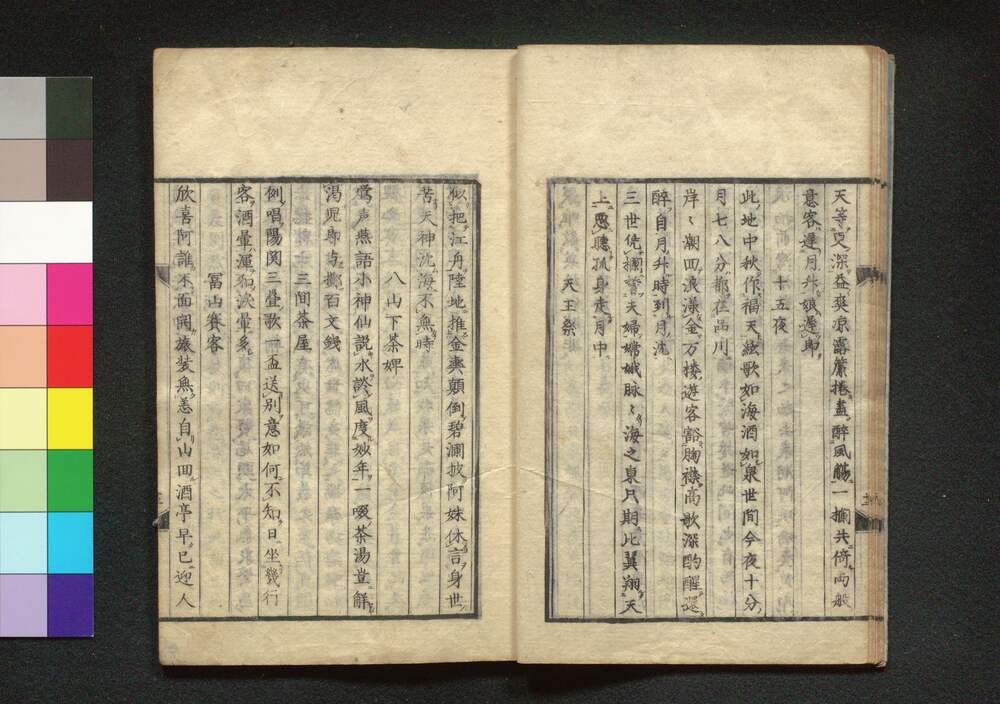 天等更深益爽凉露簾捲盡醉風觴一擱共倚両般
意客遅月舛娘遅郎
十五夜
此地中秋作福天絃歌如海酒如泉世間今夜十分
月七八分都在品川
岸〻潮回浪漾金万楼遊客豁胸襟高歌深酌醒還
醉自月舛時到月沈
三世侊擱誓夫婦嫦娥脉〻海之東只期比翼翔天
上思聴孤身走月中
天王祭
似把江舟陸地推金輿顛倒碧瀾披阿妹休言身世
苦天神沈海不無時
八山下茶婢
鴬声燕語小神仙説水談風度妙年一啜茶湯豈解
渇児郎占擲百文銭
三間茶屋
例唱陽関三畳歌一盃送別意如何不知日坐幾行
客酒暈渾如涙暈多
冨山賽客
欣喜阿誰不面開旅装無恙自山回酒亭早已迎人